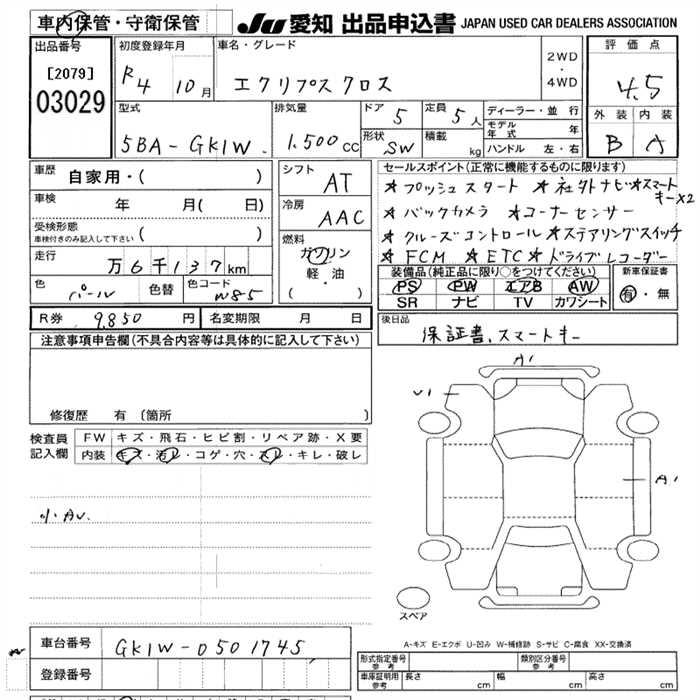 車内保管・守衛保管
JU 愛知 出品申込書 JAPAN USED CAR DEALERS ASSOCIATION
出品番号
[2079]
03029
初度登録年月
R4 10月
車名・グレード
エクリプス クロス
2WD
・
4WD
評価点
4.5
外装 内装
B A
型式
5BA-GK1W
排気量
1.500cc
ドア 5
定員 5人
形状 SW
積載 kg
ディーラー・並 行
モデル年式 年
ハンドル 左・右
車歴 自家用・( )
車検 年 月( 日)
受検形態
車検付きのみ記入して下さい ( )
走行 万6千137km
色 パール 色替 色コード W85
シフト AT
冷房 AAC
燃料
ガソリン
軽・油
( ・ )
セールスポイント(正常に機能するものに限ります)
★プッシュスタート ★社外ナビ ★スマートキー×2
★バックカメラ ★コーナーセンサー
★クルーズコントロール ★ステアリングスイッチ
★FCM ★ETC ★ドライブレコーダー
装備品(純正品に限り○をつけてください)
PS PW エアB AW
SR ナビ TV カワシート
新車保証書
有・無
R券 9,850円 名変期限 月 日
後日品
保証書、スマートキー
注意事項申告欄(不具合内容等は具体的に記入して下さい)
修復歴 有 (箇所
検査員
記入欄
FW キズ・飛石・ヒビ割・リペア跡・X要
内装 キズ・汚レ・コゲ・穴・スレ・キレ・破レ
A1
U1
A1
スペア
A-キズ E-エクボ U-凹み W-補修跡 S-サビ C-腐食 XX-交換済
車台番号 GK1W-0501745
登録番号
形式指定番号
参考
類別区分番号
参考
車庫証明用
参考
長さ cm 幅 cm 高さ cm